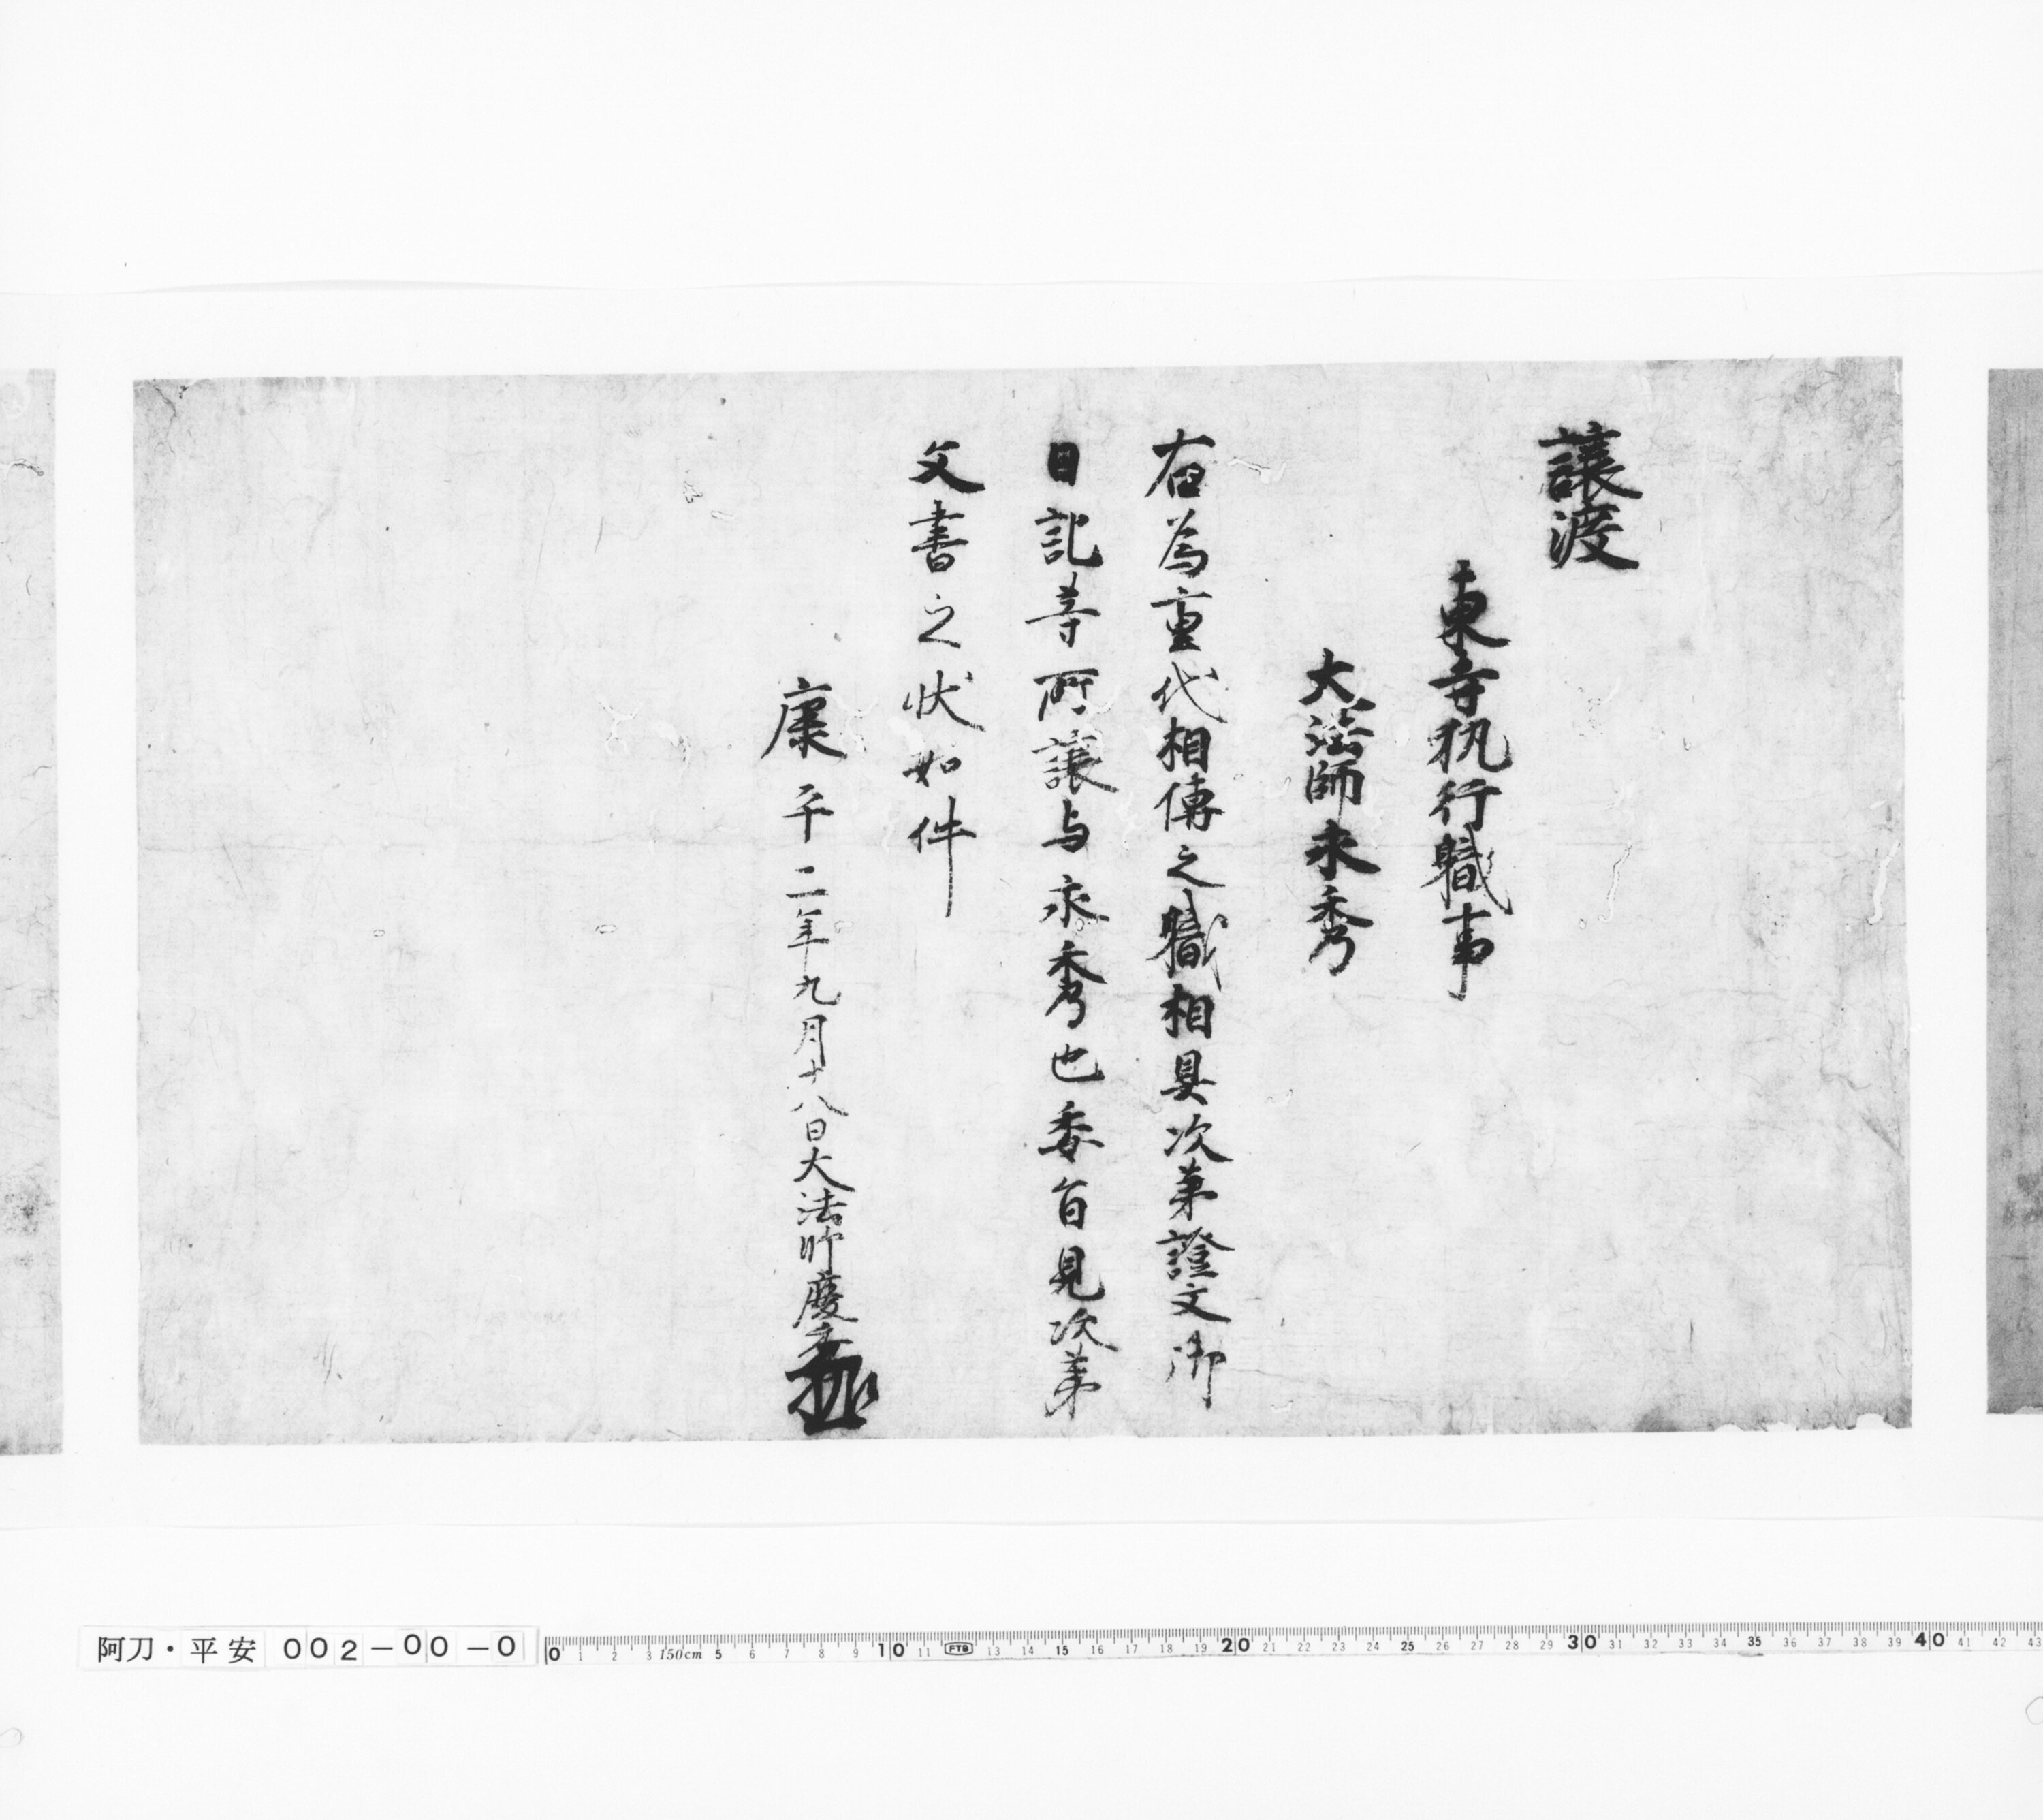 譲渡
東寺執行職事
大法師永秀
右為重代相傳之職相具次第證文御
日記等所譲与永秀也委旨見次第
文書之状如件
康平二年九月十八日大法師慶
阿刀・平安 002-00-0
0 1 2 3 150cm 5 6 7 8 9 10 11 FTB 13 14 15 16 17 18 19 20 21 22 23 24 25 26 27 28 29 30 31 32 33 34 35 36 37 38 39 40 41 42 43